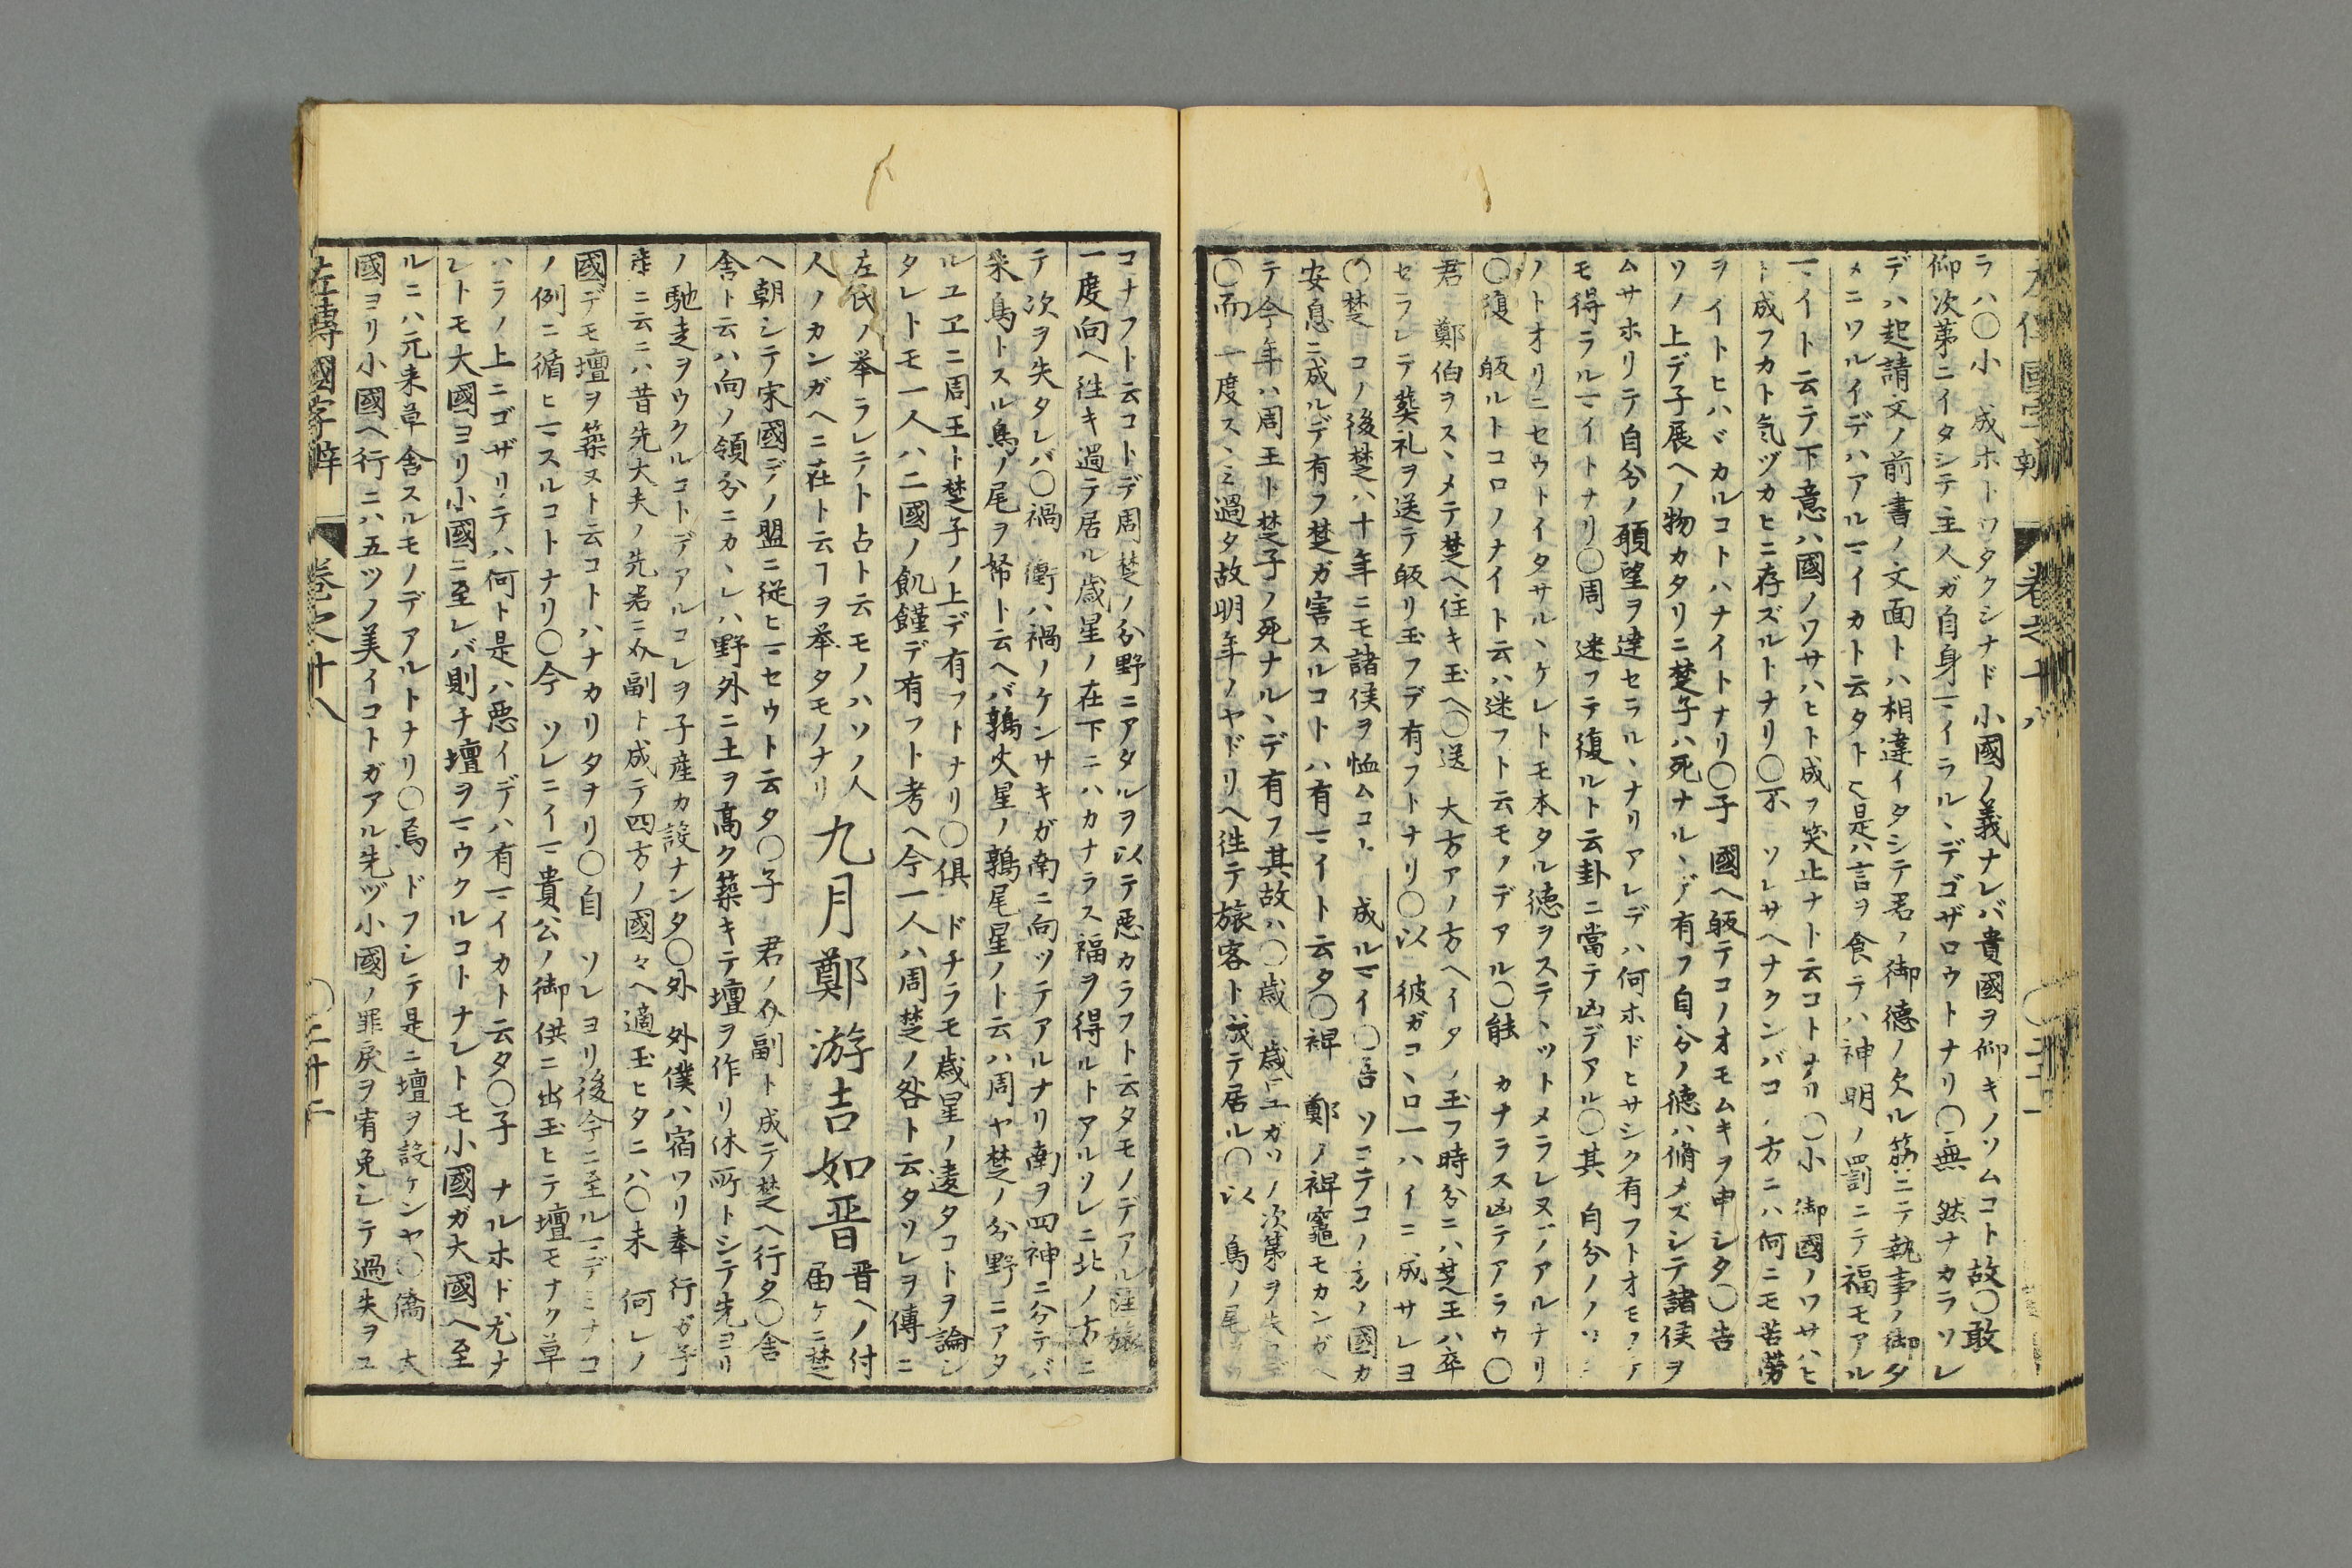 ラハ〇小 成ホトワタクシナド小國ノ義ナレバ貴國ヲ仰キノソムコト故〇敢
仰次第ニイタシテ主人ガ自身マイラルヽデゴザロウトナリ〇無 然ナカラソレ
デハ起請文ノ前書ノ文面トハ相違イタシテ君ノ御德ノ欠ル筋ニテ執事ノ御タ
メニワルイデハアルマイカト云タト是ハ言ヲ食テハ神明ノ罰ニテ福モアル
マイト云テ下意ハ國ノワサハヒト成フ笑止ナト云コトナリ〇小 御國ノワサハヒ
ト成フカト気ヅカヒニ存ズルトナリ〇不 ソレサヘナクンバコノ方ニハ何ニモ苦勞
ヲイトヒハバカルコトハナイトナリ〇子 國ヘ皈テコノオモムキヲ申シタ〇告
ソノ上デ子展ヘノ物カタリニ楚子ハ死ナルヽデ有フ自分ノ德ハ脩メズシテ諸侯ヲ
ムサホリテ自分ノ願望ヲ達セラルヽナリアレデハ何ホドヒサシク有フトオモフテ
モ得ラルマイトナリ〇周 迷フテ復ルト云卦ニ當テ凶デアル〇其 自分ノ
ノトオリニセウトイタサルヽケレトモ本タル德ヲステヽットメラレヌデアルナリ
〇復 皈ルトコロノナイト云ハ迷フト云モノデアル〇能 カナラス凶テアラウ〇
君 鄭伯ヲスヽメテ楚ヘ住キ玉ヘ〇送 大方アノ方ヘイタノ玉フ時分ニハ楚王ハ卒
セラレテ葬礼ヲ送テ皈リ玉フデ有フトナリ〇以 彼ガコヽロ一ハイニ成サレヨ
〇楚 コノ後楚ハ十年ニモ諸侯ヲ恤ムコト 成ルマイ〇吾 ソコテコノ方ノ國カ
安息ニ成ルデ有フ楚ガ害スルコトハ有マイト云タ〇裨 鄭ノ裨竈モカンガヘ
テ今年ハ周王ト楚子ノ死ナルヽデ有フ其故ハ〇歳 歳
〇而 一度スヽミ過タ故明年ノヤドリヘ徃テ旅客ト成テ居ル〇以 鳥ノ尾
コナフト云コトデ周楚ノ分野ニアタルヲ以テ悪カラフト云タモノデアル注旅
一度向ヘ徃キ過テ居ル歳星ノ在下ニハカナラス福ヲ得ルトアルソレニ北ノ方ニ
テ次ヲ失タレバ〇禍 衝ハ禍ノケンサキガ南ニ向ツテアルナリ南ヲ四神ニ分テバ
朱鳥トスル鳥ノ尾ヲ帑ト云ヘバ鶉火星ノ鶉尾星ノト云ハ周ヤ楚ノ分野ニアタ
ルユヱニ周王ト楚子ノ上デ有フトナリ〇俱 ドチラモ歳星ノ違タコトヲ論シ
タレトモ一人ハ二國ノ飢饉デ有フト考ヘ今一人ハ周楚ノ咎ト云タソレヲ傳ニ
左氏ノ挙ラレテト占ト云モノハソノ人
人ノカンガヘニ在ト云フヲ挙タモノナリ
九月鄭游吉如晋
晋ヘノ付
届ケニ楚
ヘ朝シテ宋國デノ盟ニ従ヒマセウト云タ〇子 君ノ介副ト成テ楚ヘ行タ〇舎
舎ト云ハ向ノ領分ニカヽレハ野外ニ土ヲ高ク築キテ壇ヲ作リ休所トシテ先ヨリ
ノ馳走ヲウクルコトデアルコレヲ子産カ設ナンタ〇外 外僕ハ宿ワリ奉行ガ子
産ニ云ニハ昔先大夫ノ先君ニ介副ト成テ四方ノ國々ヘ適玉ヒタニハ〇未 何レノ
國デモ壇ヲ築ヌト云コトハナカリタナリ〇自 ソレヨリ後今ニ至ルマデミナコ
ノ例ニ循ヒマスルコトナリ〇今 ソレニイマ貴公ノ御供ニ出玉ヒテ壇モナク草
ハラノ上ニゴザリテハ何ト是ハ悪イデハ有マイカト云タ〇子 ナルホド尤ナ
レトモ大國ヨリ小國ニ至レバ則チ壇ヲマウクルコトナレトモ小國ガ大國ヘ至
ルニハ元来草舎スルモノデアルトナリ〇焉 ドフシテ是ニ壇ヲ設ケンヤ〇僑 大
國ヨリ小國ヘ行ニハ五ツノ美イコトガアル先ヅ小國ノ罪戻ヲ宥免シテ過失ヲユ
左傳國字辯 卷之十八 〇二十二